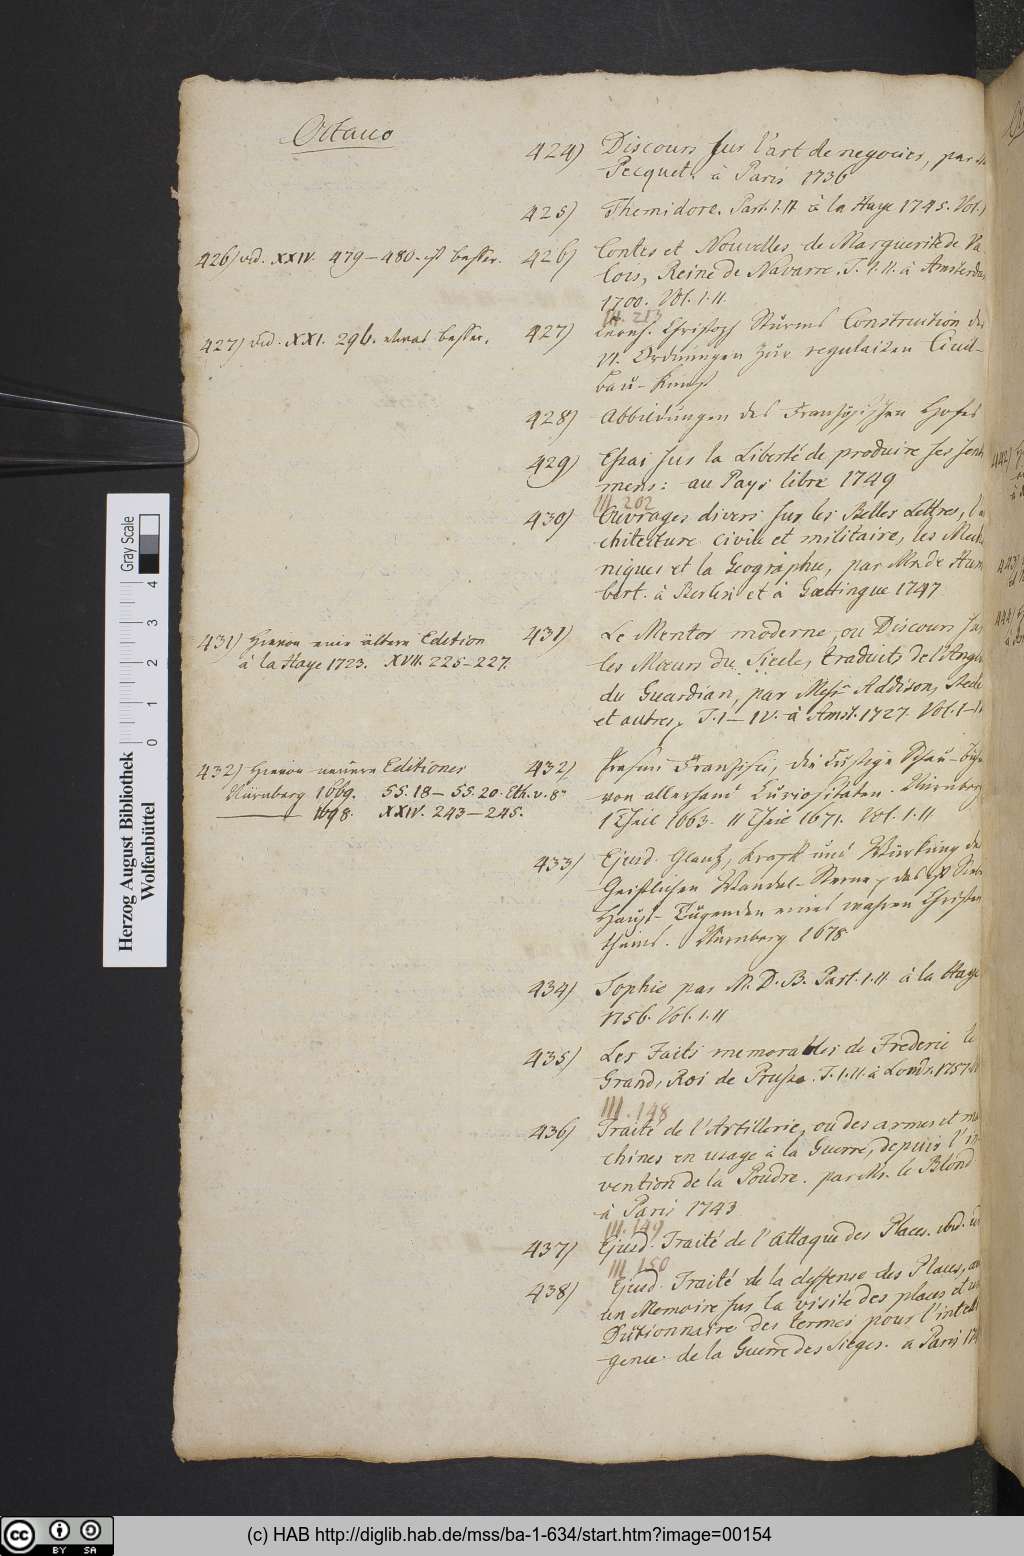 Octavo
424) Discours sur l'art de negocier, par
Pecquet. à Paris 1736
425) Themidore. Part. I. II à la Haye 1745. Vol. I
426) vid. XXIV. 479-480. ist besser.
426) Contes et Nouvelles de Marguerite de Va
lois, Reine de Navarre. T. I. II. à Amsterdam
1700. Vol. I. II.
III. 213
427) vid. XXI. 296. etwas besser.
427) Leonh. Christoph Sturms Construction der
VI. Ordnungen zur regulairen Civil-
bau-Kunst
428) Abbildungen des Französischen Hofes
429) Essai sur la Liberté de produire ses senti
mens: au Pays libre 1749
III. 202
430) Ouvrages divers sur les Belles Lettres, l'a
chitecture civile et militaire, les Mecha
niques et la Geographie, par Mr. de Hum
bert. à Berlin et à Gœttingue 1747
431) Hievon eine ältere Edition
à la Haye 1723. XVII. 225-227.
431) Le Mentor moderne, ou Discours sur
les Mœurs du Siecle, traduits de l'Anglois
du Guardian, par Mess. Addison, Steele
et autres, T. I-IV. à Amst. 1727. Vol. I-IV
432) Hievon neuere Editiones
Nürnberg 1669. 55. 18-55. 20. Eth. v. 8°
1698. XXIV. 243-245.
432) Erasmi Francisci, die Lustige Schau-bühne
von allerhand Curiositäten. Nürnberg
I Theil 1663. II Theil 1671. Vol. I. II
433) Ejusd. Glantz, Krafft und Würkung des
Geistlichen Wandel-Sterns, das ist Sieben
Haupt-Tugenden eines wahren Christen
thums. Nürnberg 1678
434) Sophie par M. D. B. Part. I. II à la Haye
1756. Vol. I. II
435) Les Faits memorables de Frederic le
Grand, Roi de Prusse. T. I. II. à Londr. 1757.
III. 148
436) Traité de l'Artillerie, ou des armes et ma
chines en usage à la Guerre, depuis l'in
vention de la Poudre. par Mr. le Blond
à Paris 1743
III. 149
437) Ejusd. Traité de l'attaque des Places. ibid.
III. 150
438) Ejusd. Traité de la deffense des Places, av
un Memoire sur la visite des places et un
Dictionnaire des termes pour l'intelli
gence de la Guerre des Sieges. a Paris 174
442)
443)
444)
Herzog August Bibliothek
Wolfenbüttel
0 1 2 3 4
Gray Scale
cc BY SA
(c) HAB http://diglib.hab.de/mss/ba-1-634/start.htm?image=00154